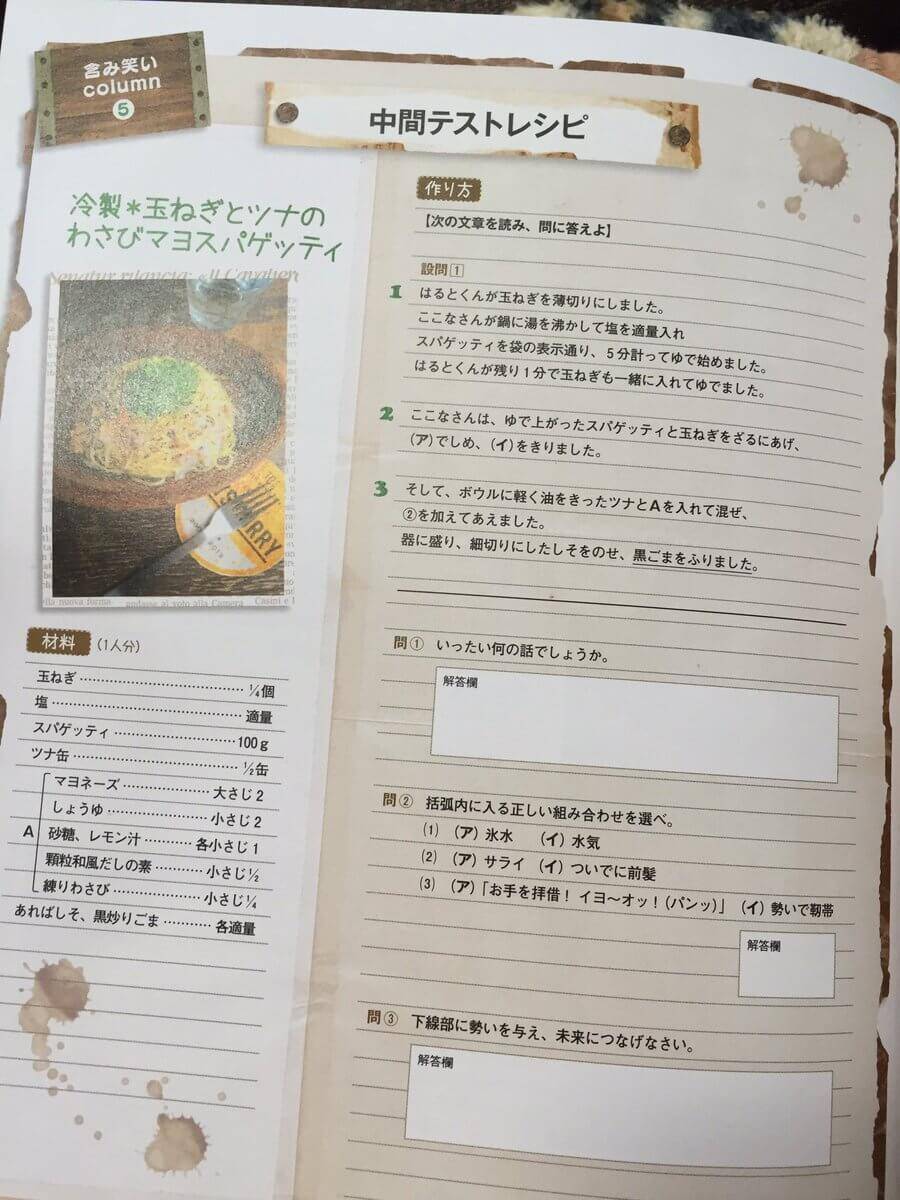 含み笑い
column
5
中間テストレシピ
冷製*玉ねぎとツナの
わさびマヨスパゲッティ
Senatur rilancia: «Il Cavalier
SCURRY
ella nuova forma
andasse al voto alla Camera
Casini e l
材料 (1人分)
玉ねぎ ¼個
塩 適量
スパゲッティ 100g
ツナ缶 ½缶
A
マヨネーズ 大さじ2
しょうゆ 小さじ2
砂糖、レモン汁 各小さじ1
顆粒和風だしの素 小さじ½
練りわさび 小さじ¼
あればしそ、黒炒りごま 各適量
作り方
【次の文章を読み、問に答えよ】
設問1
1 はるとくんが玉ねぎを薄切りにしました。
ここなさんが鍋に湯を沸かして塩を適量入れ
スパゲッティを袋の表示通り、5分計ってゆで始めました。
はるとくんが残り1分で玉ねぎも一緒に入れてゆでました。
2 ここなさんは、ゆで上がったスパゲッティと玉ねぎをざるにあげ、
(ア)でしめ、(イ)をきりました。
3 そして、ボウルに軽く油をきったツナとAを入れて混ぜ、
②を加えてあえました。
器に盛り、細切りにしたしそをのせ、黒ごまをふりました。
問① いったい何の話でしょうか。
解答欄
問② 括弧内に入る正しい組み合わせを選べ。
(1) (ア) 氷水 (イ) 水気
(2) (ア) サライ (イ) ついでに前髪
(3) (ア)「お手を拝借! イヨ〜オッ!(パンッ)」 (イ) 勢いで靭帯
解答欄
問③ 下線部に勢いを与え、未来につなげなさい。
解答欄